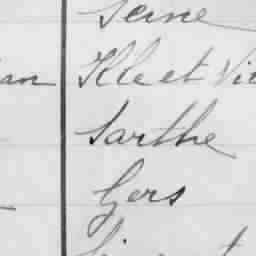 Seine
an Ille et Vil
Sarthe
Gers